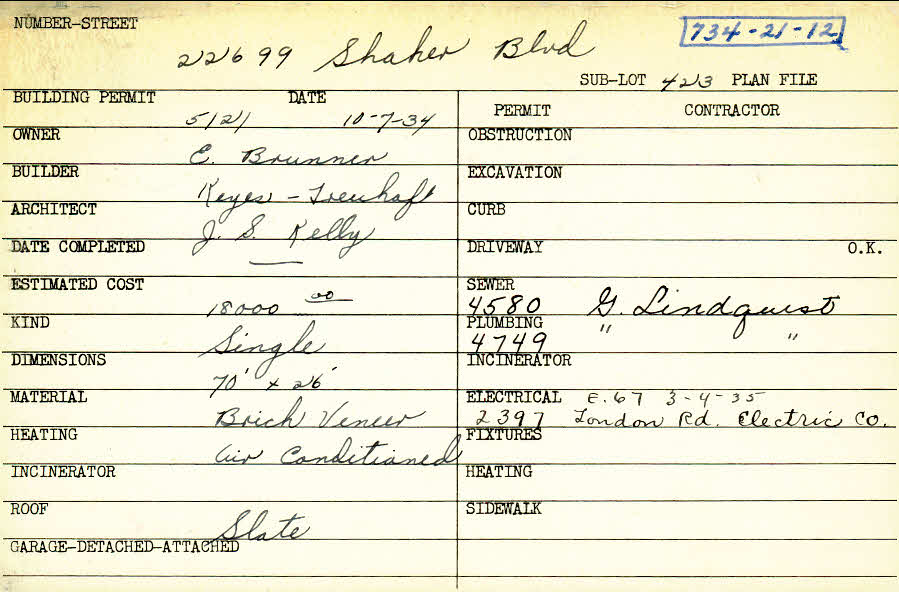 NUMBER-STREET
22699 Shaker Blvd
734-21-12
SUB-LOT 423 PLAN FILE
BUILDING PERMIT 5121 DATE 10-7-34
PERMIT CONTRACTOR
OWNER E. Brunner
OBSTRUCTION
BUILDER Keyes - Treuhaft
EXCAVATION
ARCHITECT J. S. Kelly
CURB
DATE COMPLETED —
DRIVEWAY O.K.
ESTIMATED COST 18000 00
SEWER 4580 G. Lindquist
KIND Single
PLUMBING 4749 " "
DIMENSIONS 70' x 26'
INCINERATOR
MATERIAL Brick Veneer
ELECTRICAL E.67 3-4-35
2397 London Rd. Electric Co.
HEATING Air Conditioned
FIXTURES
INCINERATOR
HEATING
ROOF Slate
SIDEWALK
GARAGE-DETACHED-ATTACHED